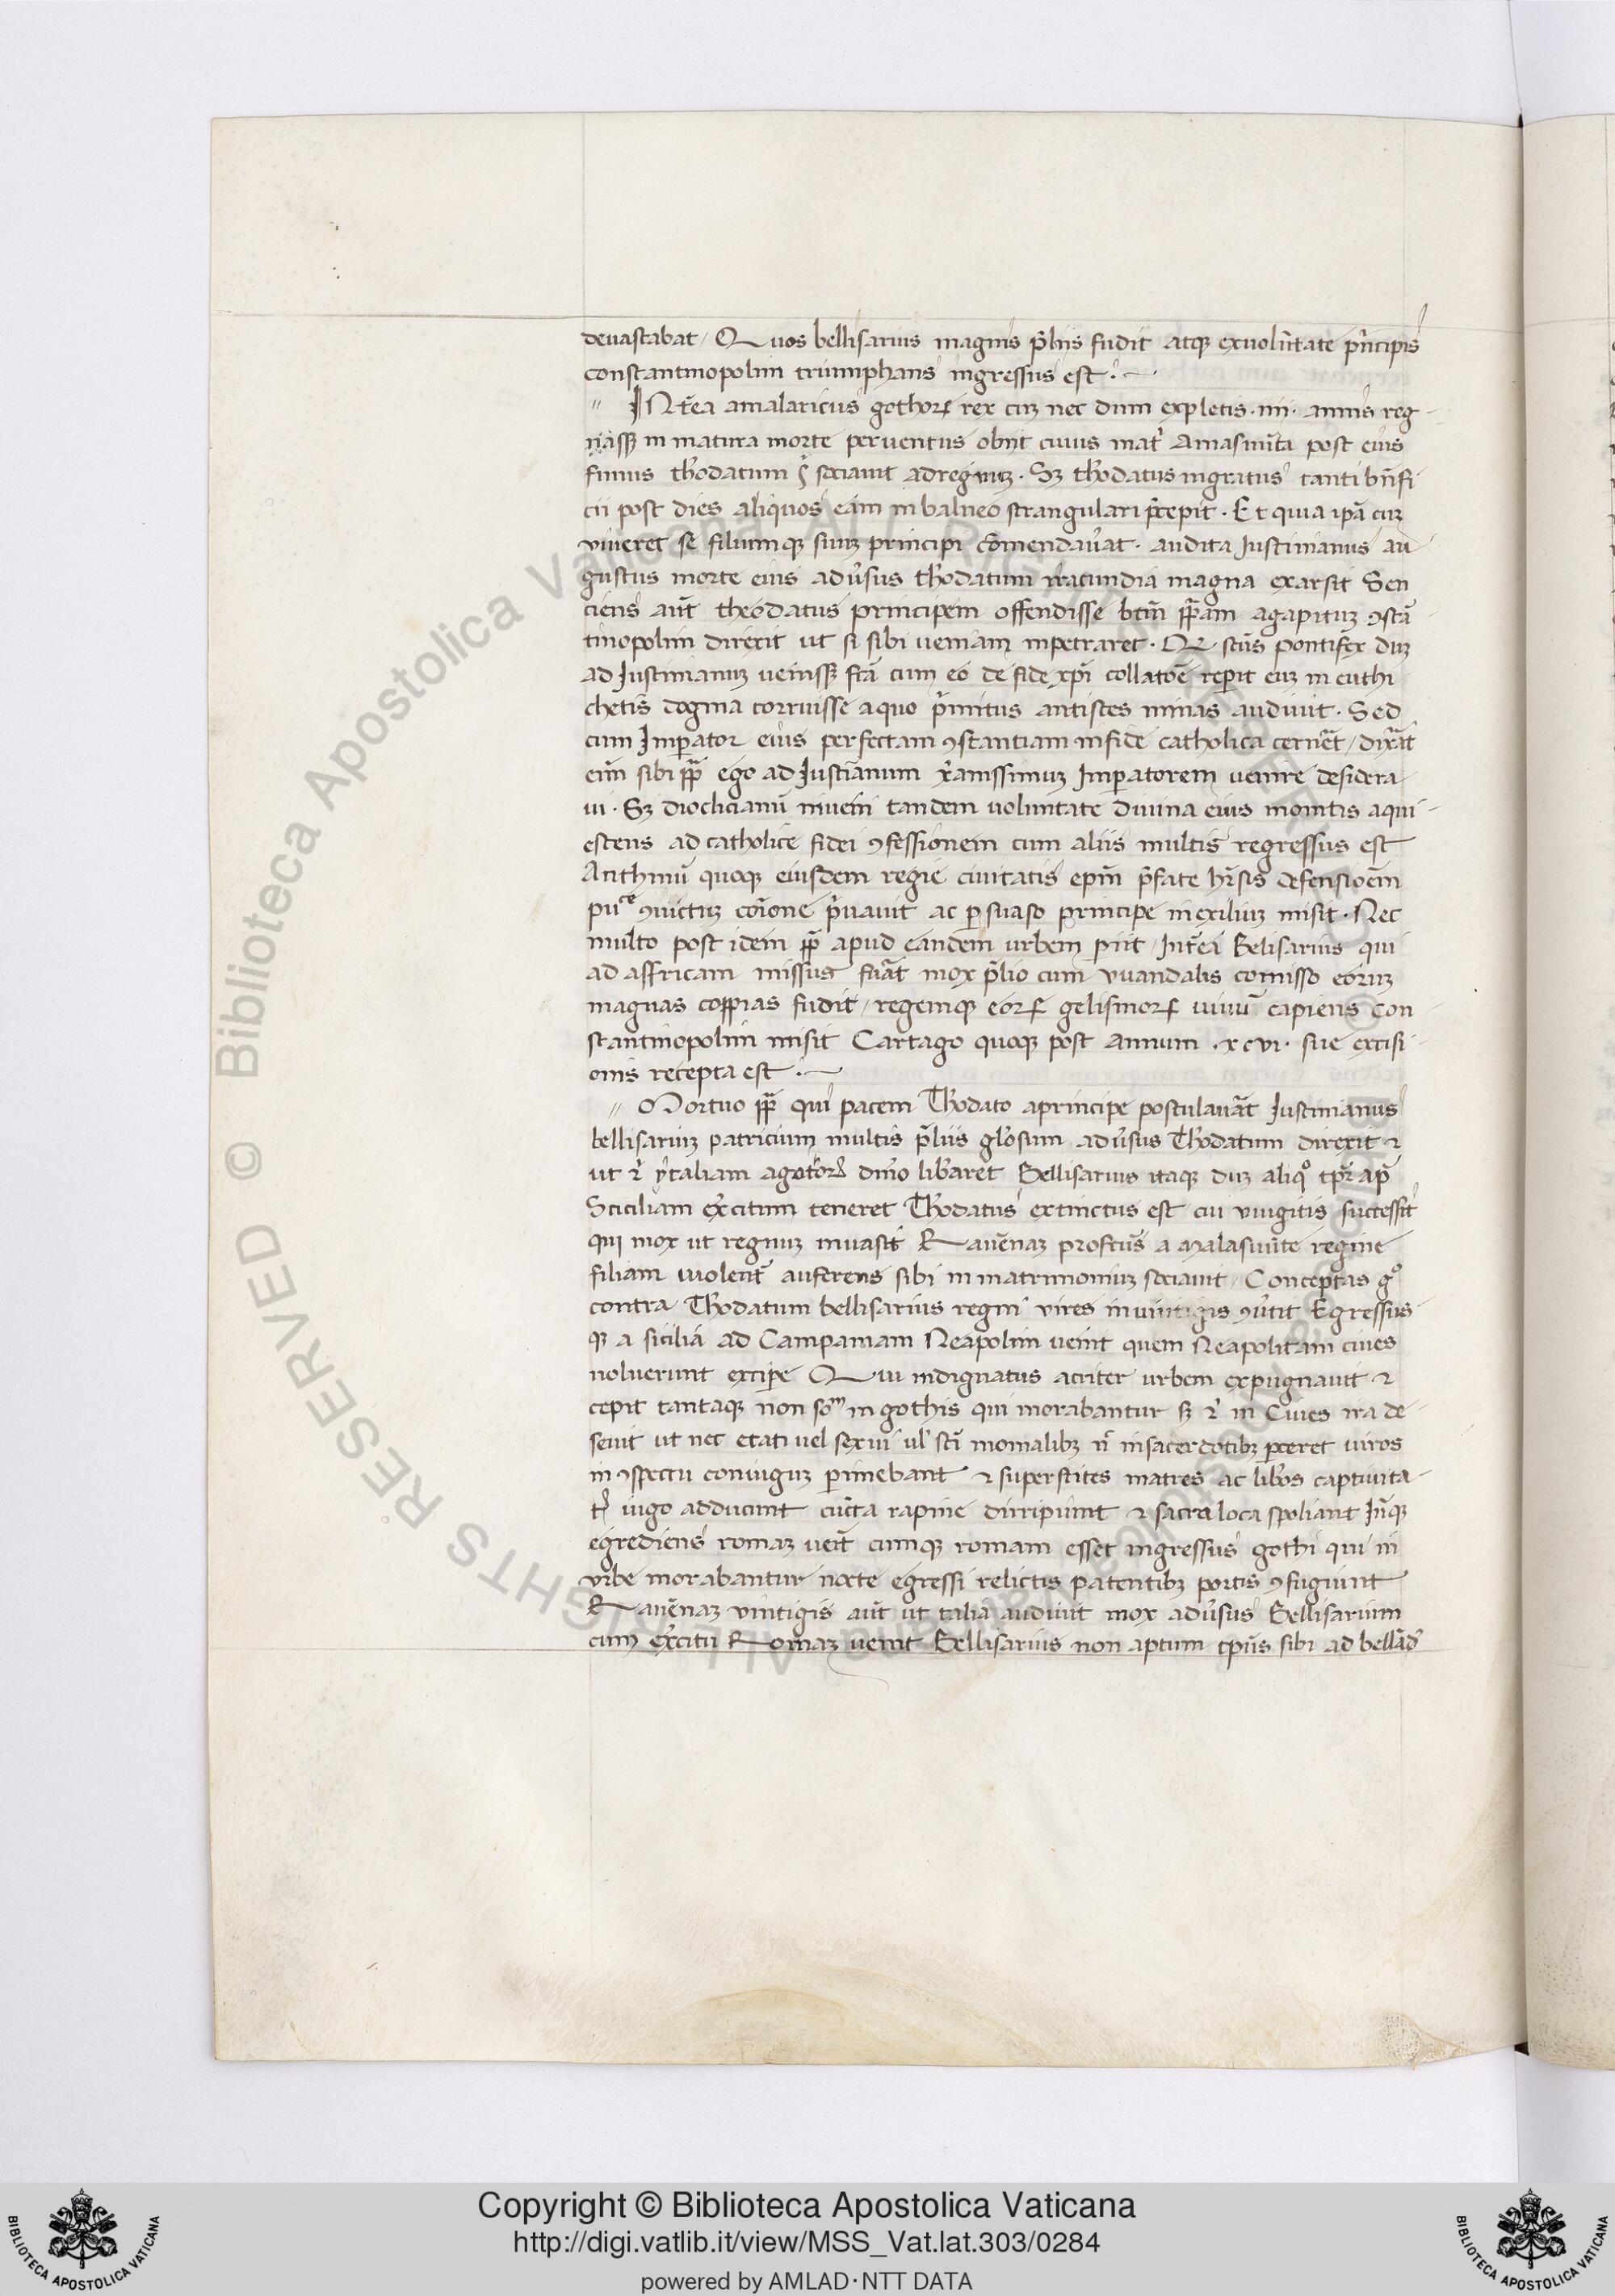 devastabat / Quos bellisarius magnis p̄liis fudit atq̨ exvolūtate p̄ncipis
constantinopolim triumphans ingressus est .
" INt̄ea amalaricus gothoꝝ rex cuꝫ nec dum expletis · iiii · annis reg-
nassꝫ in matura morte perventus obiit cuius mat̄ Amasiūta post eius
funus th̄odatum sociavit adregnuꝫ · Sꝫ th̄odatus ingratus tanti bn̄fi
cii post dies aliquos eam in balneo strangulari p̄cepit · Et quia ip̄a cuꝫ
viveret se filiumqꝫ suuꝫ principi cōmendav̄at · audita Iustinianus au
gustus morte eius adv̄sus th̄odatum iracundia magna exarsit Sen
ciens aūt theodatus principem offendisse btm̄ pp̄am agapituꝫ ꝯstā
tinopolim direxit ut si sibi veniam inpetraret · Q scūs pontifex duꝫ
ad Iustinianuꝫ venissꝫ fcā cum eo de fide xp̄i collatōe rep̄it euꝫ in euthi
chetis dogma corruisse aquo p̄mitus antistes minas audivit · Sed
cum Imp̄ator eius perfectam ꝯstantiam infide catholica cern̄et / dix̄at
eni̅ sibi pp̄ ego ad Iusti̅anum x̄anissimuꝫ Imp̄atorem venire desidera-
vi · Sꝫ dioclicianū inveni tandem voluntate divina eius monitis aqui-
escens ad catholice fidei ꝯfessionem cum aliis multis regressus est
Anthimū quoqꝫ eiusdem regie civitatis epm̄ p̄fate hr̄sis defensioēm
puᶜᵉ ꝯvictuꝫ cōione p̄vavit ac p̱suaso principe inexiliuꝫ misit · Nec
multo post idem pp̄ apud eandem urbem p̱iit / Int̄ea Belisarius qui
ad affricam missus fūat mox p̄lio cum vvandalis comisso eoruꝫ
magnas coppias fudit / regemqꝫ eoꝝ gelismoꝝ vivū capiens Con
stantinopolim misit Cartago quoqꝫ post annum · xcvi · sue excisi-
onis recepta est .
" Mortuo pp̄ qui pacem Th̄odato aprincipe postulav̄at Iustinianus
bellisariuꝫ patricium multis p̄liis gl̄osum adv̄sus Th̄odatum direxit ⁊
ut ⁊̄ ytaliam agotoꝝ dn̄io lib̄aret Bellisarius itaqꝫ duꝫ aliqº tp̄r ap̄
Sciciliam ex̄citum teneret Th̄odatus extinctus est cui vvigitis successit
qui mox ut regnuꝫ invasit Ravēnaꝫ profctūs a Malasiūte regine
filiam violent̄ auferens sibi in matrimoniuꝫ sociavit / Conceptas gº
contra Th̄odatum bellisarius regni vires in ꝯv̄tit Egressus-
qꝫ a sicilia ad Campaniam Neapolim venit quem Neapolitani cives
noluerunt excip̱e Qui indignatus acriter urbem expugnavit ⁊
cepit tantaqꝫ non soᵐ in gothis qui morabantur sꝫ ⁊̄ in Cives ira de-
seviit ut nec etati vel sexui vl̄ sc̄i monialibꝫ n̄ insacerdotibꝫ p̱ceret viros
in ꝯspectu coniuguꝫ p̱imebant ⁊ superstites matres ac lib̄os captivita-
t̄ iugo adducunt cūcta rapine dirripiunt ⁊ sacra loca spoliant In̄qꝫ
egrediens romaꝫ veīt cumqꝫ romam esset ingressus gothi qui in
urbe morabantur nocte egressi relictis patentibꝫ portis ꝯfugiunt
Ravēnaꝫ vintigis aūt ut talia audivit mox adv̄sus Bellisarium
cum ex̄citu Romaꝫ venit Bellisarius non aptum tp̄us sibi ad bellād̄
Copyright © Biblioteca Apostolica Vaticana
http://digi.vatlib.it/view/MSS_Vat.lat.303/0284
powered by AMLAD·NTT DATA
BIBLIOTECA APOSTOLICA VATICANA
BIBLIOTECA APOSTOLICA VATICANA